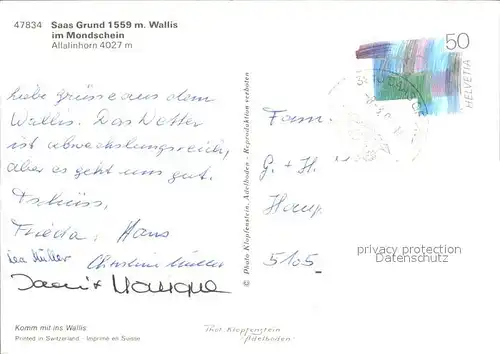 47834 Saas Grund 1559 m. Wallis
im Mondschein
Allalinhorn 4027 m
liebe Grüsse aus dem
Wallis. Das Wetter
ist abwechslungsreich,
aber es geht uns gut.
Tschüss,
Frieda, Hans
Lea Müller Christine Müller
Monique
Komm mit ins Wallis
Printed in Switzerland - Imprimé en Suisse
© Photo Klopfenstein, Adelboden - Reproduktion verboten
Phot. Klopfenstein
Adelboden
50
HELVETIA
Fam.
G. + H.
5105
privacy protection
Datenschutz